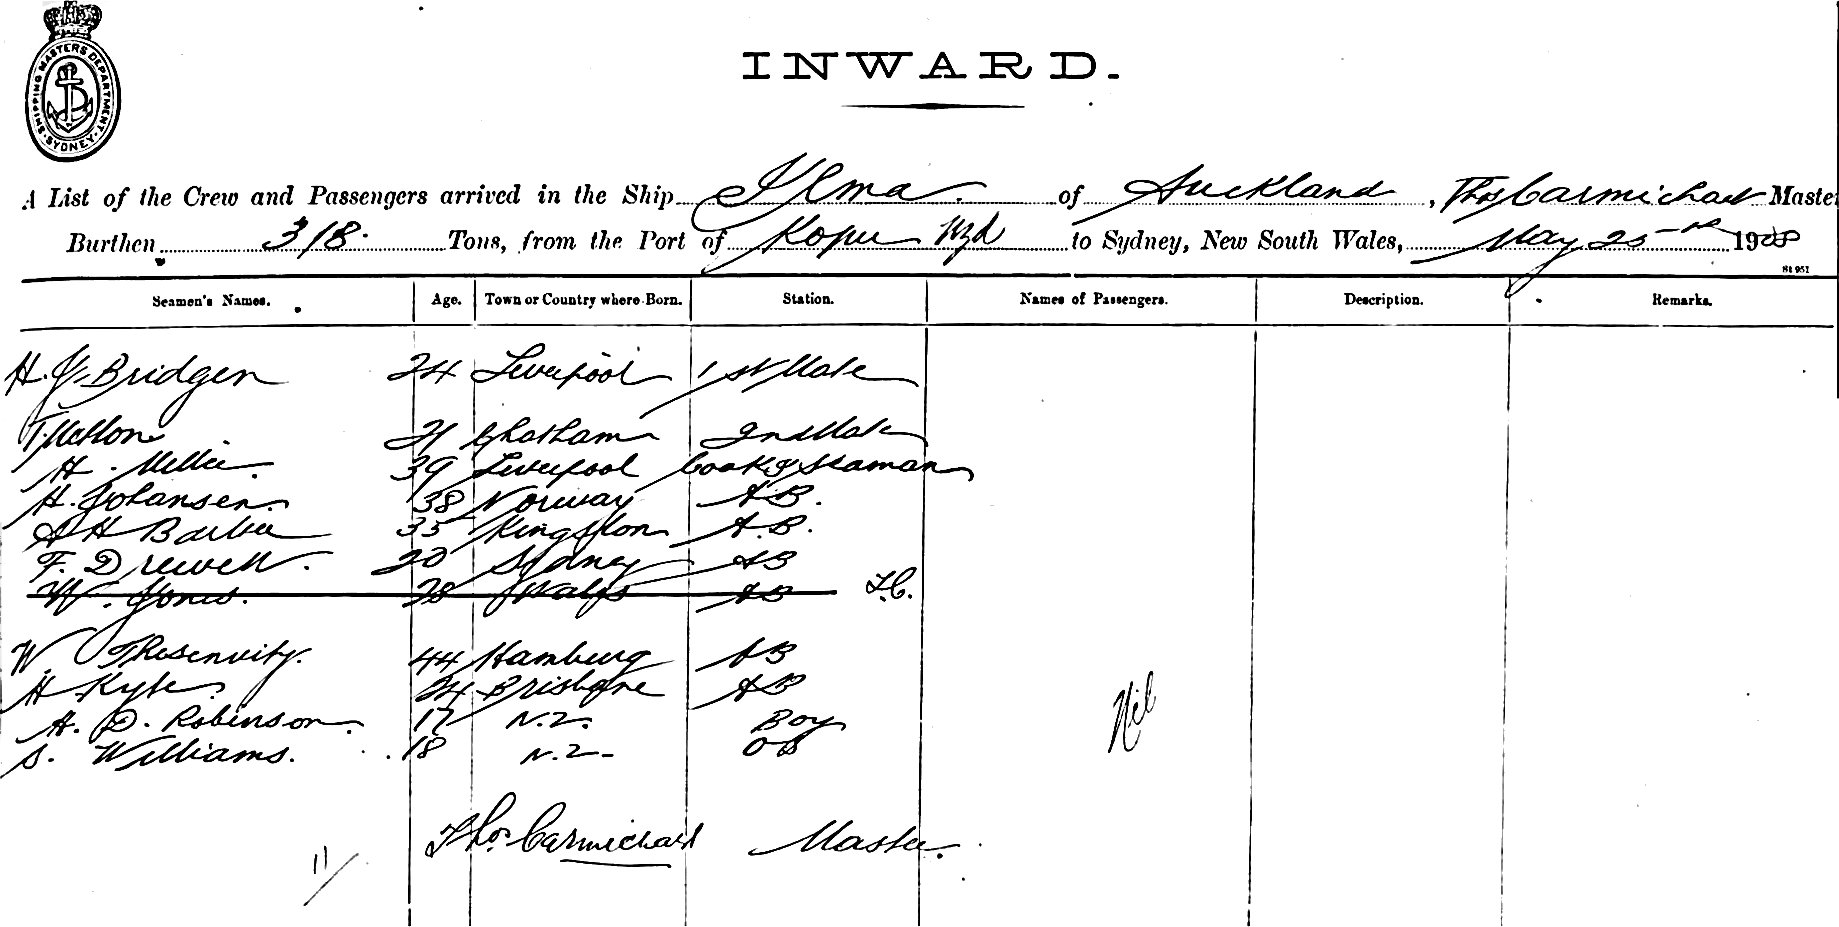 SHIPPING MASTERS DEPARTMENT. SYDNEY
INWARD.
A List of the Crew and Passengers arrived in the Ship Ilma. of Auckland, Thos Carmichael Master
Burthen 318. Tons, from the Port of Kopu Nzd to Sydney, New South Wales, May 25 1908
Seamen's Names. Age. Town or Country where Born. Station. Names of Passengers. Description. Remarks.
H. J. Bridgen 24 Liverpool 1st Mate
21 Chatham 2nd Mate
H. 39 Liverpool Cook & Seaman
H. Johansen. 38 Norway A B.
A H 35 Kingston A. B.
F. Drewett. 20 Sydney AB
W. Jones. 28 Wales AB T.C.
W 44 Hamburg AB
H Kyle. 24 Brisbane AB
H. D. Robinson. 17 N.Z. Boy
S. Williams. 18 N.Z. OS
Nil
Thos. Carmichael Master.
11/